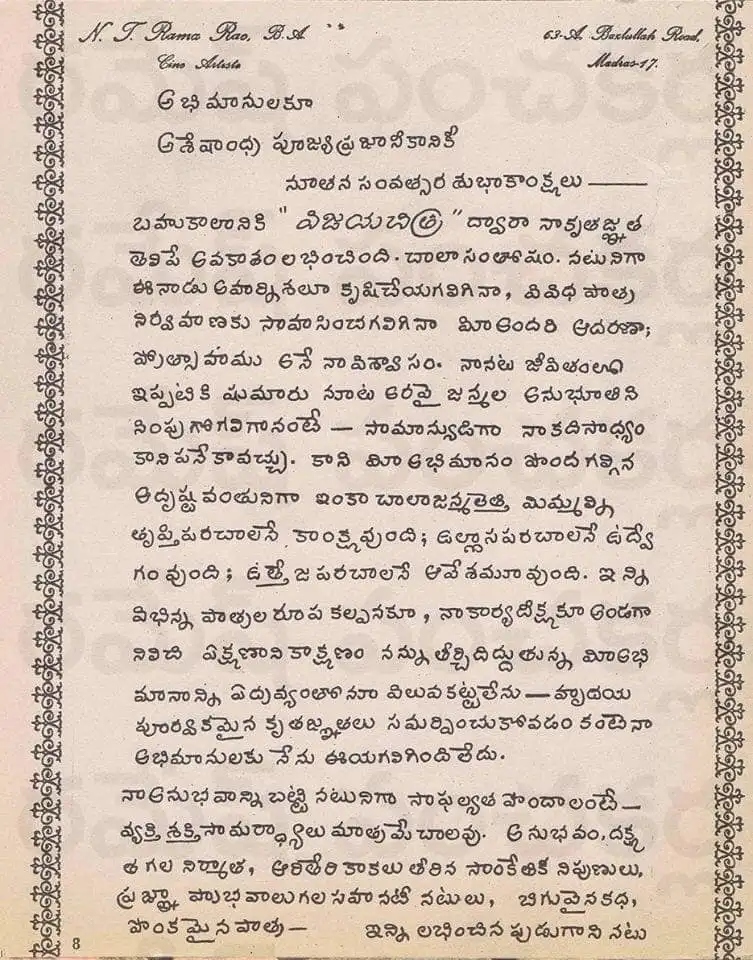 N. T. Rama Rao, B.A
63-A, Bazlullah Road,
Cine Artiste
Madras-17.
అభిమానులకూ
అశేషాంధ్ర పూజ్యప్రజానీకానికీ
నూతన సంవత్సర శుభాకాంక్షలు ———
బహుకాలానికి "విజయచిత్ర" ద్వారా నాకృతజ్ఞత
తెలిపే అవకాశం లభించింది. చాలా సంతోషం. నటునిగా
ఈనాడు అహర్నిశలూ కృషిచేయగలిగినా, వివిధ పాత్ర
నిర్వహణకు సాహసించగలిగినా మీఅందరి ఆదరణా;
ప్రోత్సాహము అనే నావిశ్వాసం. నానట జీవితంలో
ఇప్పటికి షుమారు నూట అరవై జన్మల అనుభూతిని
నింపుగోగలిగానంటే — సామాన్యుడిగా నాకదిసాధ్యం
కానిపనేకావచ్చు. కాని మీఅభిమానం పొందగల్గిన
అదృష్టవంతునిగా ఇంకా చాలాజన్మలెత్తి మిమ్మల్ని
తృప్తిపరచాలనే కాంక్షవుంది; ఉల్లాసపరచాలనే ఉద్వే
గంవుంది; ఉత్తేజపరచాలనే ఆవేశమూవుంది. ఇన్ని
విభిన్న పాత్రల రూపకల్పనకూ, నాకార్యదీక్షకూ అండగా
నిలిచి ఏక్షణానికాక్షణం నన్నుతీర్చిదిద్దుతున్న మీఅభి
మానాన్ని ఏద్రవ్యంతోనూ విలువకట్టలేను — హృదయ
పూర్వకమైన కృతజ్ఞతలు సమర్పించుకోవడం కంటెనా
అభిమానులకు నేను ఈయగలిగిందిలేదు.
నాఅనుభవాన్ని బట్టి నటునిగా సాఫల్యత పొందాలంటే —
వ్యక్తి శక్తిసామర్ధ్యాలు మాత్రమే చాలవు. అనుభవం, దక్ష
తగల నిర్మాత, ఆరితేరి కాకలు తీరిన సాంకేతిక నిపుణులు,
ప్రజ్ఞా ప్రాభవాలుగల సహనటీ నటులు, బిగువైనకధ,
పొంకమైనపాత్ర — ఇన్ని లభించిన పుడుగాని నటు
8